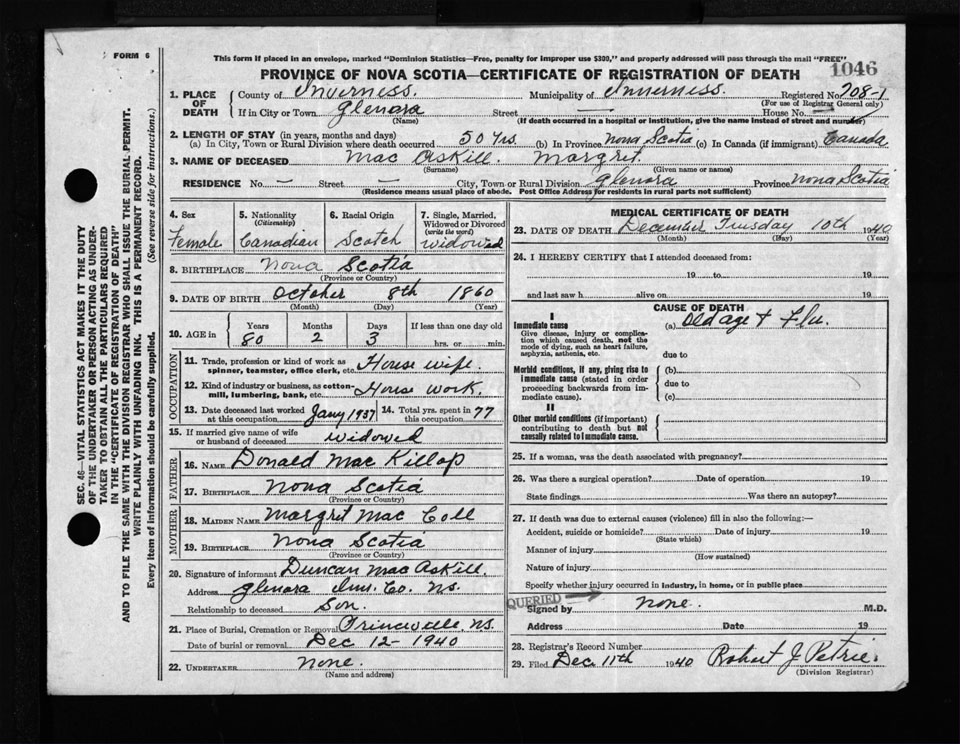 FORM 6
This form if placed in an envelope, marked "Dominion Statistics—Free, penalty for improper use $300," and properly addressed will pass through the mail "FREE"
1046
PROVINCE OF NOVA SCOTIA—CERTIFICATE OF REGISTRATION OF DEATH
1. PLACE OF DEATH County of Inverness. Municipality of Inverness. Registered No. 208-1
(For use of Registrar General only)
If in City or Town Glenora Street — House No.
(Name) (If death occurred in a hospital or institution, give the name instead of street and number)
2. LENGTH OF STAY (in years, months and days)
(a) In City, Town or Rural Division where death occurred 50 Yrs. (b) In Province Nova Scotia (c) In Canada (if immigrant) Canada
3. NAME OF DECEASED Mac Askill. Margrit.
(Surname) (Given name or names)
RESIDENCE No. — Street — City, Town or Rural Division Glenora Province Nova Scotia
(Residence means usual place of abode. Post Office Address for residents in rural parts not sufficient)
4. Sex Female
5. Nationality (Citizenship) Canadian
6. Racial Origin Scotch
7. Single, Married, Widowed or Divorced (write the word) widowed
8. BIRTHPLACE Nova Scotia
(Province or Country)
9. DATE OF BIRTH October 8th 1860
(Month) (Day) (Year)
10. AGE in Years Months Days If less than one day old
80 2 3 hrs. or min.
OCCUPATION
11. Trade, profession or kind of work as spinner, teamster, office clerk, etc. House wife.
12. Kind of industry or business, as cotton-mill, lumbering, bank, etc. House work,
13. Date deceased last worked at this occupation Jany 1937 14. Total yrs. spent in this occupation 77
15. If married give name of wife or husband of deceased widowed
FATHER
16. NAME Donald Mac Killop
17. BIRTHPLACE Nova Scotia
(Province or Country)
MOTHER
18. MAIDEN NAME Margrit Mac Coll
19. BIRTHPLACE Nova Scotia
(Province or Country)
20. Signature of informant Duncan MacAskill.
Address Glenora Inv. Co. N.S.
Relationship to deceased Son.
21. Place of Burial, Cremation or Removal Princeville, N.S.
Date of burial or removal Dec 12 - 1940
22. UNDERTAKER None.
(Name and address)
MEDICAL CERTIFICATE OF DEATH
23. DATE OF DEATH December Tuesday 10th 1940
(Month) (Day) (Year)
24. I HEREBY CERTIFY that I attended deceased from:
19 to 19
and last saw h alive on 19
CAUSE OF DEATH
I
Immediate cause (a) Old age & Flu.
Give disease, injury or complication which caused death, not the mode of dying, such as heart failure, asphyxia, asthenia, etc.
due to
Morbid conditions, if any, giving rise to immediate cause (stated in order proceeding backwards from immediate cause).
(b)
due to
(c)
II
Other morbid conditions (if important) contributing to death but not causally related to immediate cause.
25. If a woman, was the death associated with pregnancy?
26. Was there a surgical operation? Date of operation 19
State findings Was there an autopsy?
27. If death was due to external causes (violence) fill in also the following:—
Accident, suicide or homicide? Date of injury 19
(State which)
Manner of injury
(How sustained)
Nature of injury
Specify whether injury occurred in industry, in home, or in public place
QUERIED
Signed by none. M.D.
Address Date 19
28. Registrar's Record Number
29. Filed Dec 11th 1940 Robert J Petrie.
(Division Registrar)
SEC. 46—VITAL STATISTICS ACT MAKES IT THE DUTY
OF THE UNDERTAKER OR PERSON ACTING AS UNDER-
TAKER TO OBTAIN ALL THE PARTICULARS REQUIRED
IN THE "CERTIFICATE OF REGISTRATION OF DEATH"
AND TO FILE THE SAME WITH THE DIVISION REGISTRAR WHO SHALL ISSUE THE BURIAL PERMIT.
WRITE PLAINLY WITH UNFADING INK. THIS IS A PERMANENT RECORD.
Every item of information should be carefully supplied. (See reverse side for instructions.)